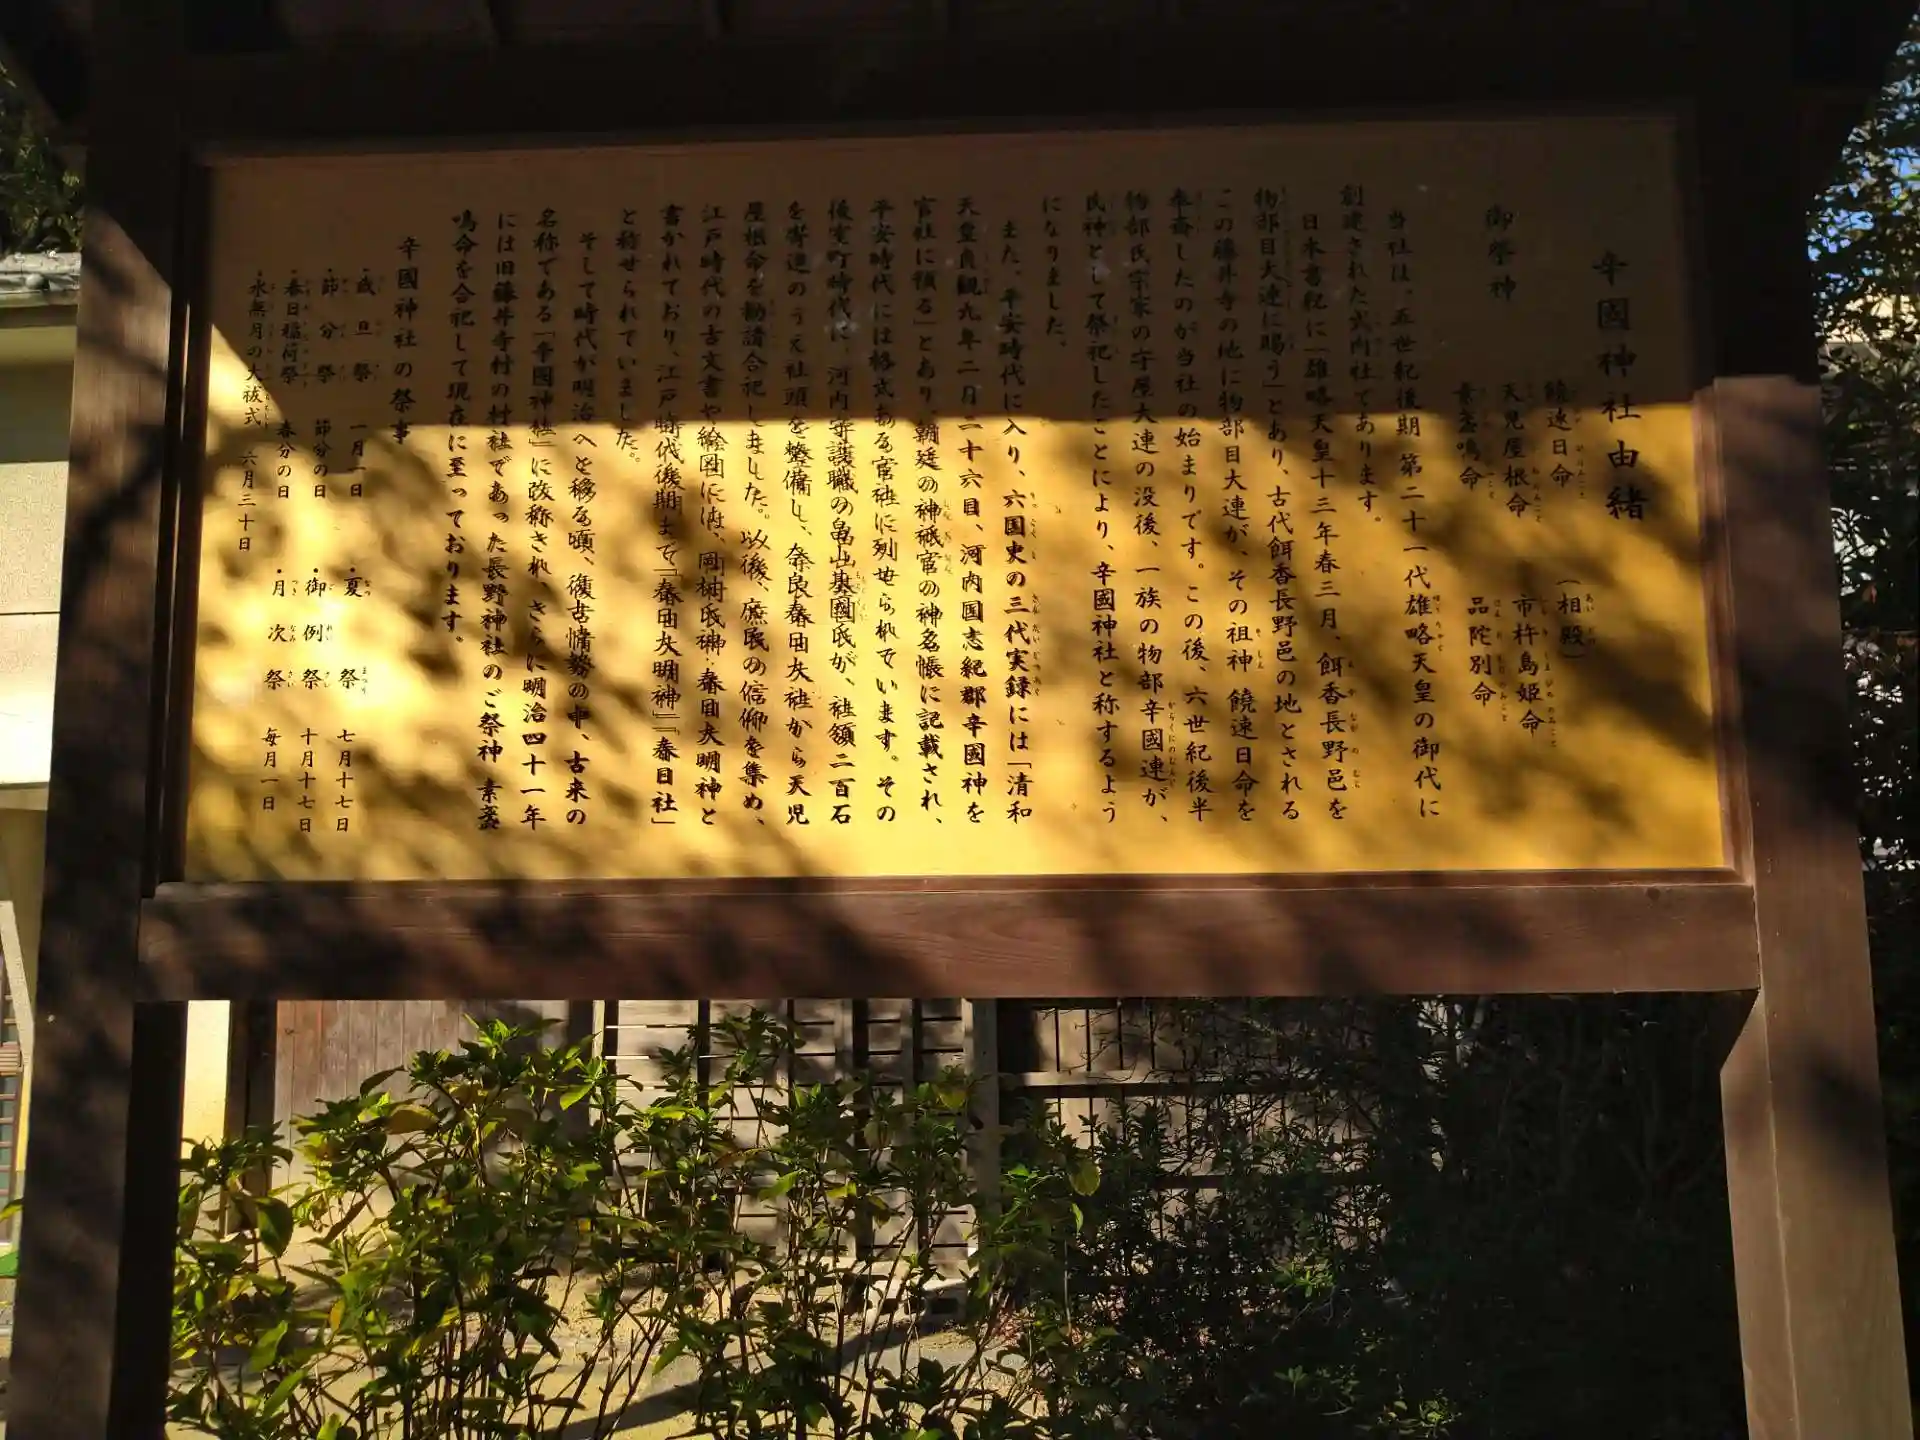 辛國神社由緒
御祭神
饒速日命
天児屋根命
素盞嗚命
(相殿)
市杵島姫命
品陀別命
当社は、五世紀後期 第二十一代雄略天皇の御代に
創建された式内社であります。
日本書紀に「雄略天皇十三年春三月、餌香長野邑を
物部目大連に賜う」とあり、古代餌香長野邑の地とされる
この藤井寺の地に物部目大連が、その祖神 饒速日命を
奉斎したのが当社の始まりです。この後、六世紀後半
物部氏宗家の守屋大連の没後、一族の物部辛國連が、
氏神として祭祀したことにより、辛國神社と称するよう
になりました。
また、平安時代に入り、六国史の三代実録には「清和
天皇貞観九年二月二十六日、河内国志紀郡辛國神を
官社に預る」とあり、朝廷の神祇官の神名帳に記載され、
平安時代には格式ある官社に列せられています。その
後室町時代に、河内守護職の畠山基國氏が、社領二百石
を寄進のうえ社頭を整備し、奈良春日大社から天児
屋根命を勧請合祀しました。以後、庶民の信仰を集め、
江戸時代の古文書や絵図には、岡村氏神・春日大明神と
書かれており、江戸時代後期まで「春日大明神」「春日社」
と称せられていました。
そして時代が明治へと移る頃、復古情勢の中、古来の
名称である「辛國神社」に改称され、さらに明治四十一年
には旧藤井寺村の村社であった長野神社のご祭神 素盞
嗚命を合祀して現在に至っております。
辛國神社の祭事
・歳旦祭 一月一日
・節分祭 節分の日
・春日稲荷祭 春分の日
・水無月の大祓式 六月三十日
・夏祭 七月十七日
・御例祭 十月十七日
・月次祭 毎月一日